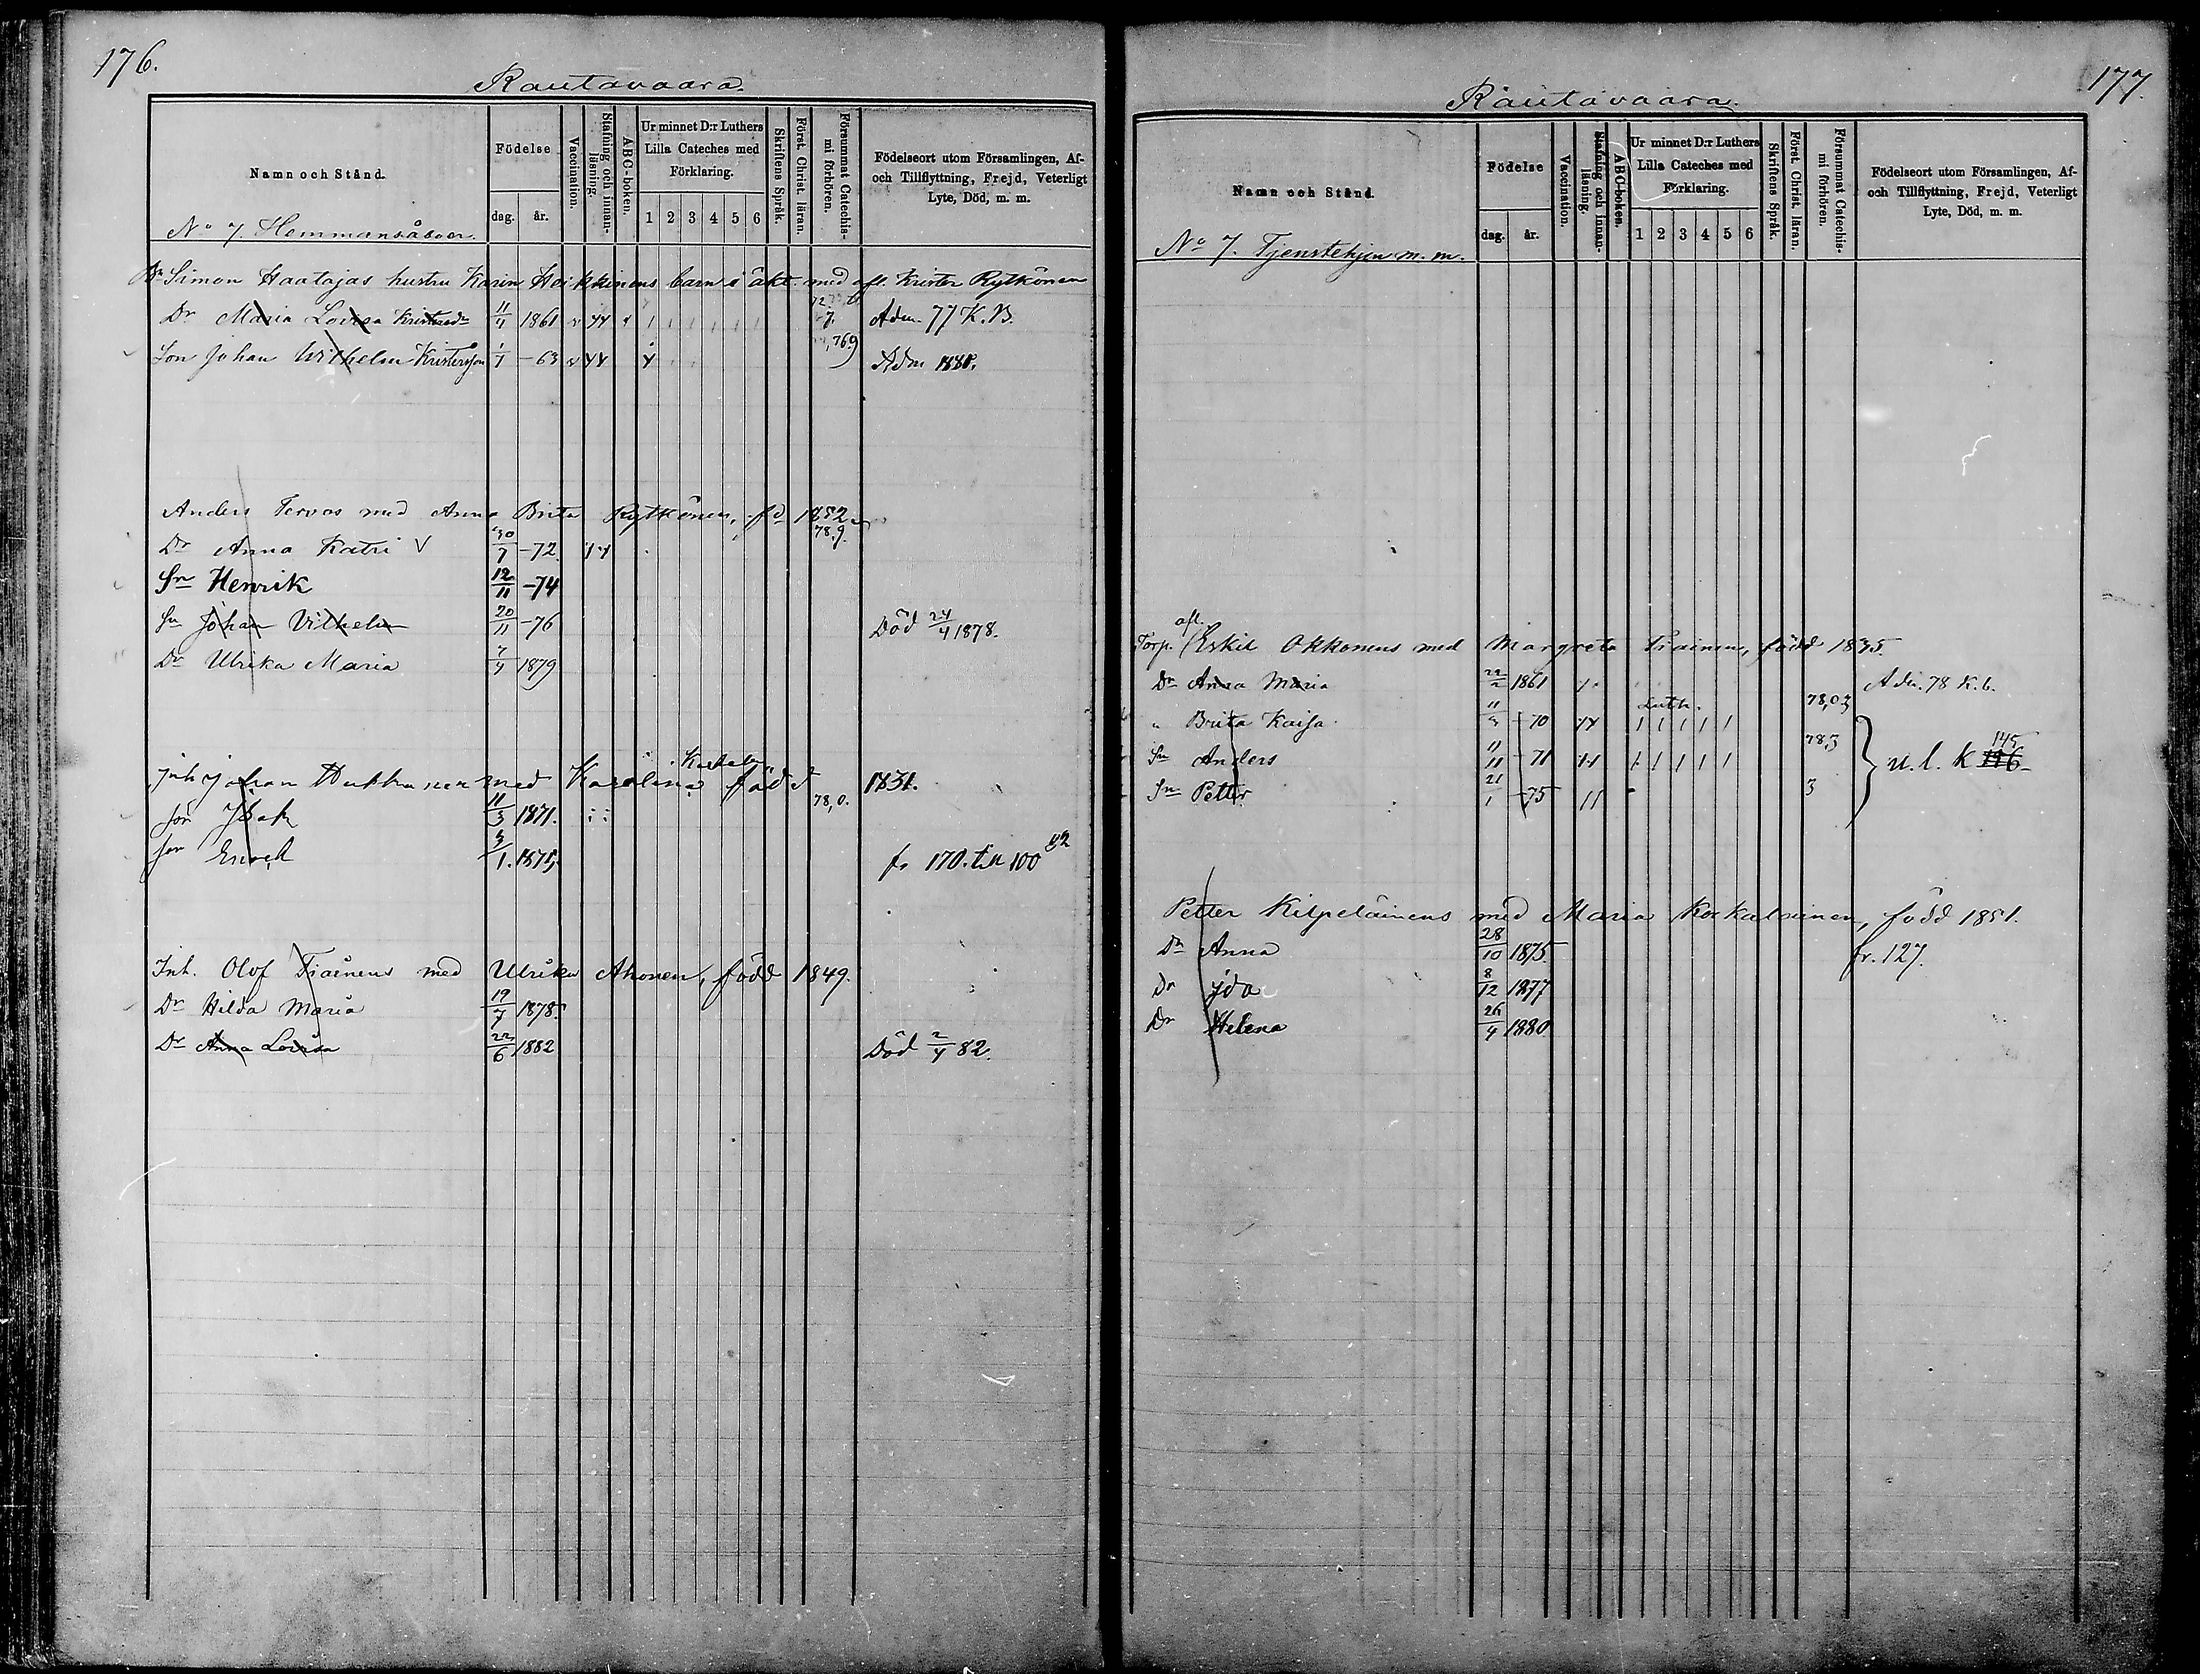 176.
Rautavaara.
Namn och Stånd.
Födelse
dag. år.
Vaccination.
Stafning och innanläsning.
ABC-boken.
Ur minnet D:r Luthers Lilla Cateches med Förklaring.
1 2 3 4 5 6
Skriftens Språk.
Först. Christ. läran.
Försummat Catechismi förhören.
Födelseort utom Församlingen, Af- och Tillflyttning, Frejd, Veterligt Lyte, Död, m. m.
No 7. Hemmansåboer.
Simon Haatajas hustru Karin Heikkinens barn i äkt. med afl. Krister Rytkönen
Dr Maria Lovisa 11/4 1861 7. Adm. 77 K. B.
Son Johan Wilhelm Kristersson 1/1 -63 Adm 1880.
Anders Tervos med Anna Brita Rytkönen, fd 1852
Dr Anna Katri V 30/7 -72 78,9.
Sn Henrik 12/11 -74
Sn Johan Vilhelm 20/11 -76 Död 24/4 1878.
Dr Ulrika Maria 7/4 1879
Inh Johan med Karolina född 1831.
Son Isak 11/3 1871. 78,0.
Son Enoch 3/1. 1875, fr 170. till 100
Inh. Olof Tiainens med Ulrika Ahonen, född 1849.
Dr Hilda Maria 19/7 1878.
Dr Anna Lovisa 22/6 1882 Död 2/4 82.
177.
Rautavaara.
Namn och Stånd.
Födelse
dag. år.
Vaccination.
Stafning och innanläsning.
ABC-boken.
Ur minnet D:r Luthers Lilla Cateches med Förklaring.
1 2 3 4 5 6
Skriftens Språk.
Först. Christ. läran.
Försummat Catechismi förhören.
Födelseort utom Församlingen, Af- och Tillflyttning, Frejd, Veterligt Lyte, Död, m. m.
No 7. Tjenstehjon m. m.
afl.
Torp. Eskil Okkonens med Margreta Tiainen, född 1835.
Dr Anna Maria 22/2 1861 Adm. 78 K. b.
" Brita Kaisa 11/3 -70 Luth. 78,03
Sn Anders 11/11 -71 78,3 n. l. k 145 116
Sn Petter 21/1 -75 3
Petter Kilpeläinens med Maria Korkalainen, född 1851.
Dr Anna 28/10 1875 fr. 127.
Dr Ida 8/12 1877
Dr Helena 26/4 1880